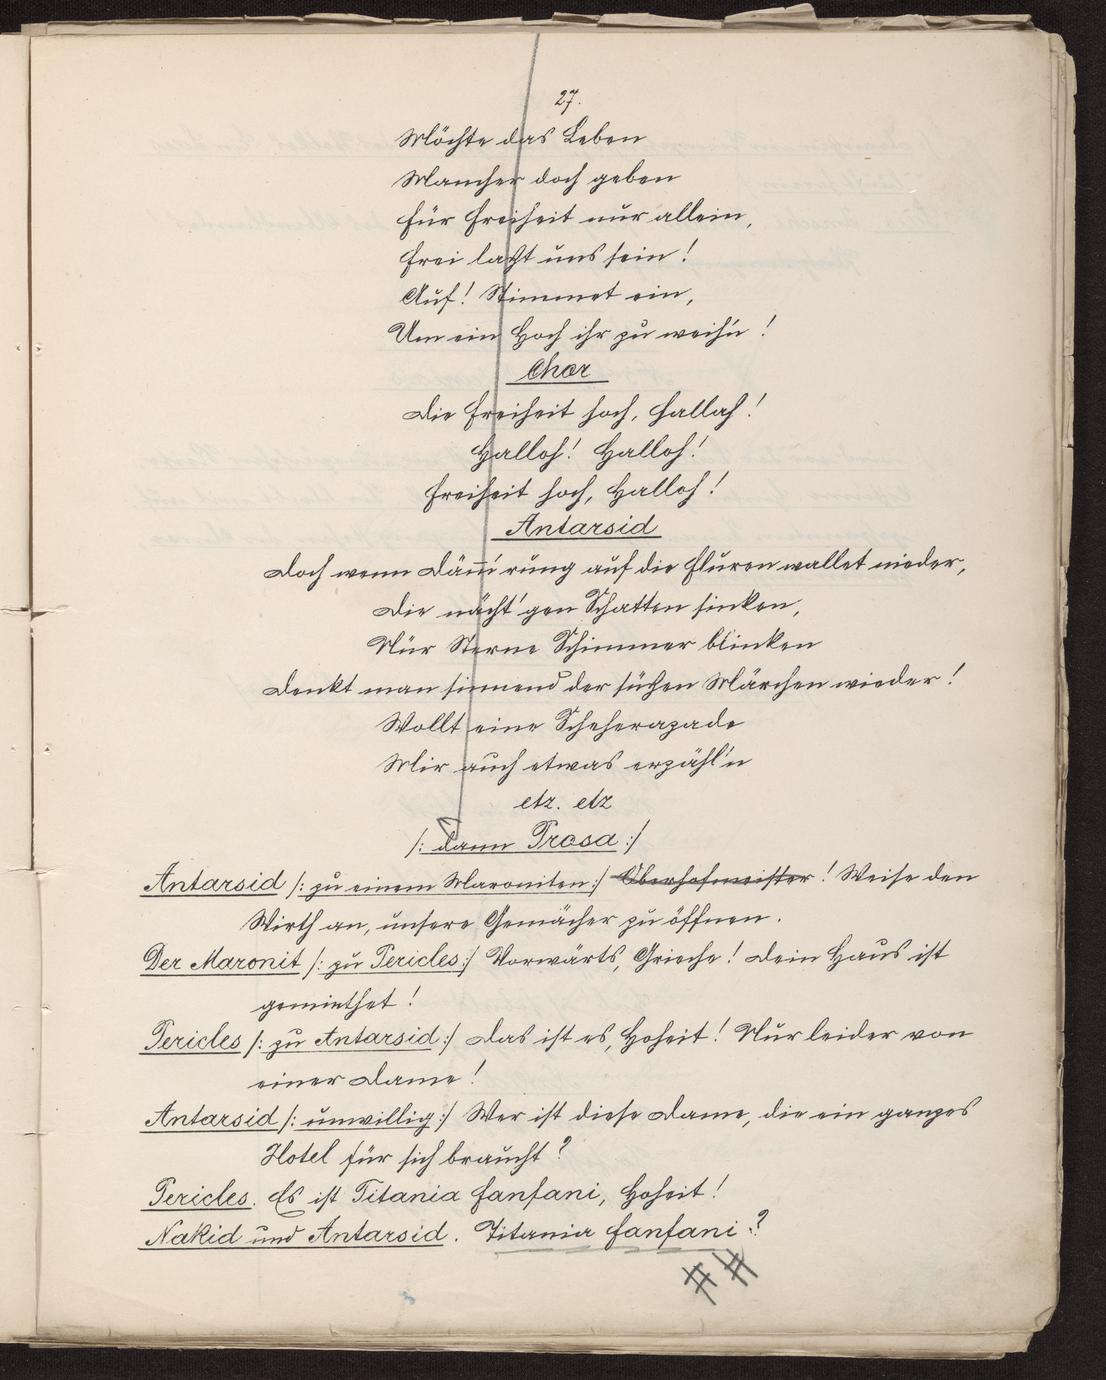 27.
Möchte das Leben
Mancher doch geben
Für Freiheit nur allein,
Frei laßt uns sein!
Auf! Stimmet ein,
Um ein Hoch ihr zu weih'n!
Chor
Die Freiheit hoch, Hallah!
Halloh! Halloh!
Freiheit hoch, Halloh!
Antarsid
Doch wenn Däm̅'rung auf die Fluren wallet nieder,
Die nächt'gen Schatten sinken,
Nur Sterne Schimmer blinken
Denkt man sinnend der süßen Märchen wieder!
Wollt eine Scheherazade
Mir auch etwas erzähl'n
etz. etz
/: Dann Prosa :/
Antarsid /: zu einem Maroniten :/ Oberhofmeister! Weise den
Wirth an, unsere Gemächer zu öffnen.
Der Maronit /: zu Pericles :/ Vorwärts, Grieche! Dein Haus ist
gemiethet!
Pericles /: zu Antarsid :/ Das ist es, Hoheit! Nur leider von
einer Dame!
Antarsid /: unwillig :/ Wer ist diese Dame, die ein ganzes
Hotel für sich braucht?
Pericles. Es ist Titania Fanfani, Hoheit!
Nakid und Antarsid. Titania Fanfani?